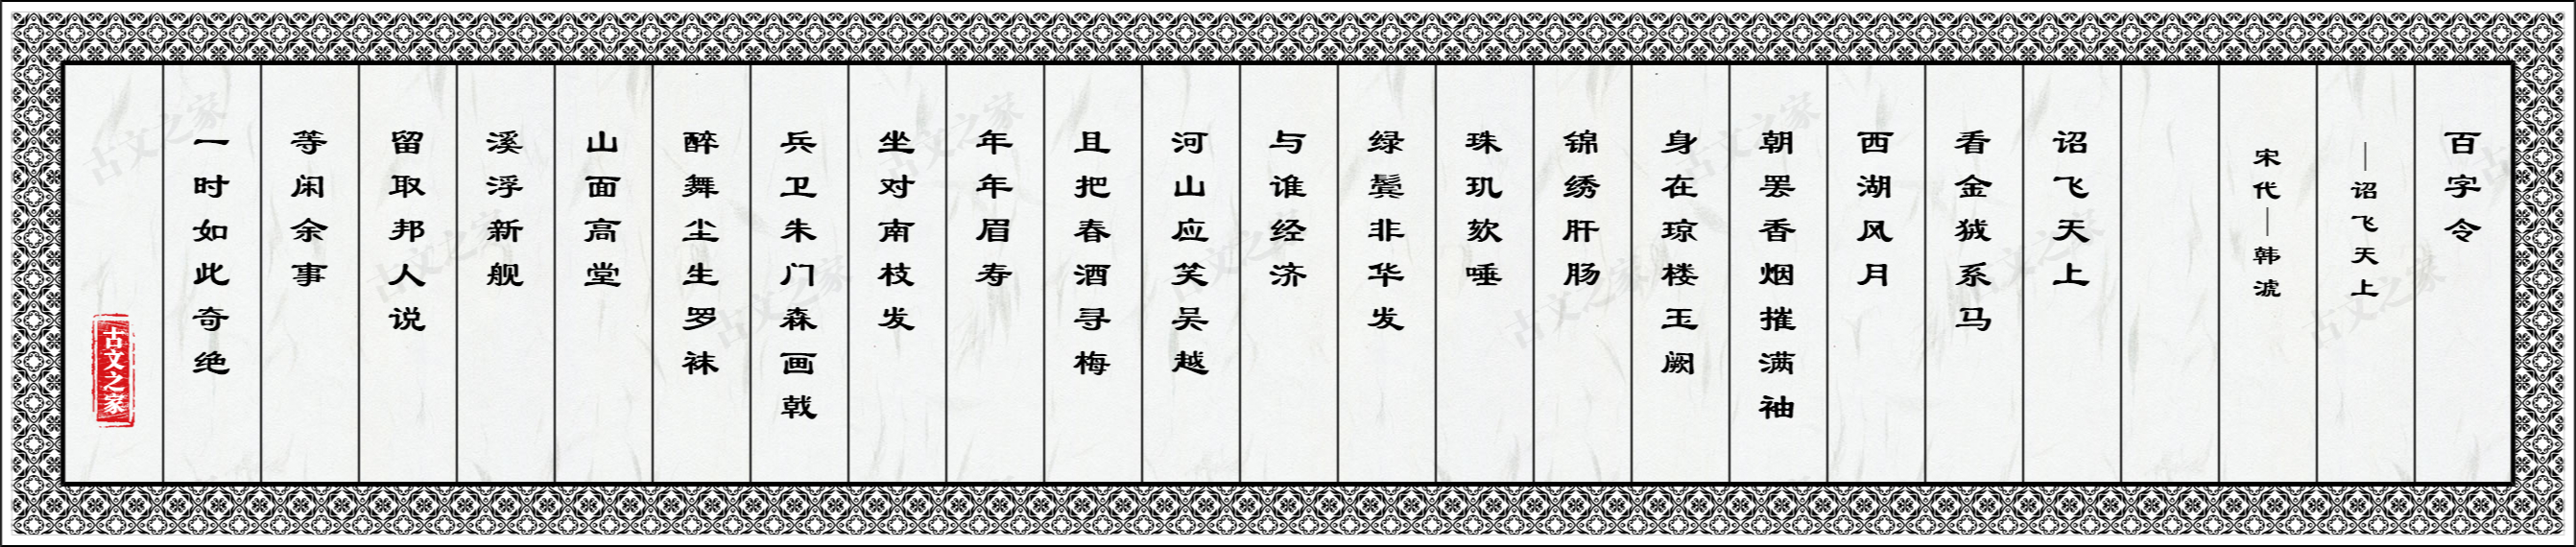 百字令
—诏飞天上
宋代—韩淲
诏飞天上
看金狨系马
西湖风月
朝罢香烟摧满袖
身在琼楼玉阙
锦绣肝肠
珠玑欬唾
绿鬓非华发
与谁经济
河山应笑吴越
且把春酒寻梅
年年眉寿
坐对南枝发
兵卫朱门森画戟
醉舞尘生罗袜
山面高堂
溪浮新舰
留取邦人说
等闲余事
一时如此奇绝
古文之家